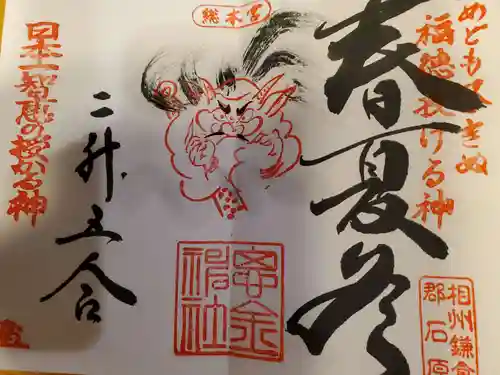 総本宮
めどもつきぬ
福徳授ける神
春夏冬
二升五合
日本一智恵の授かる神
相州鎌倉
郡石原